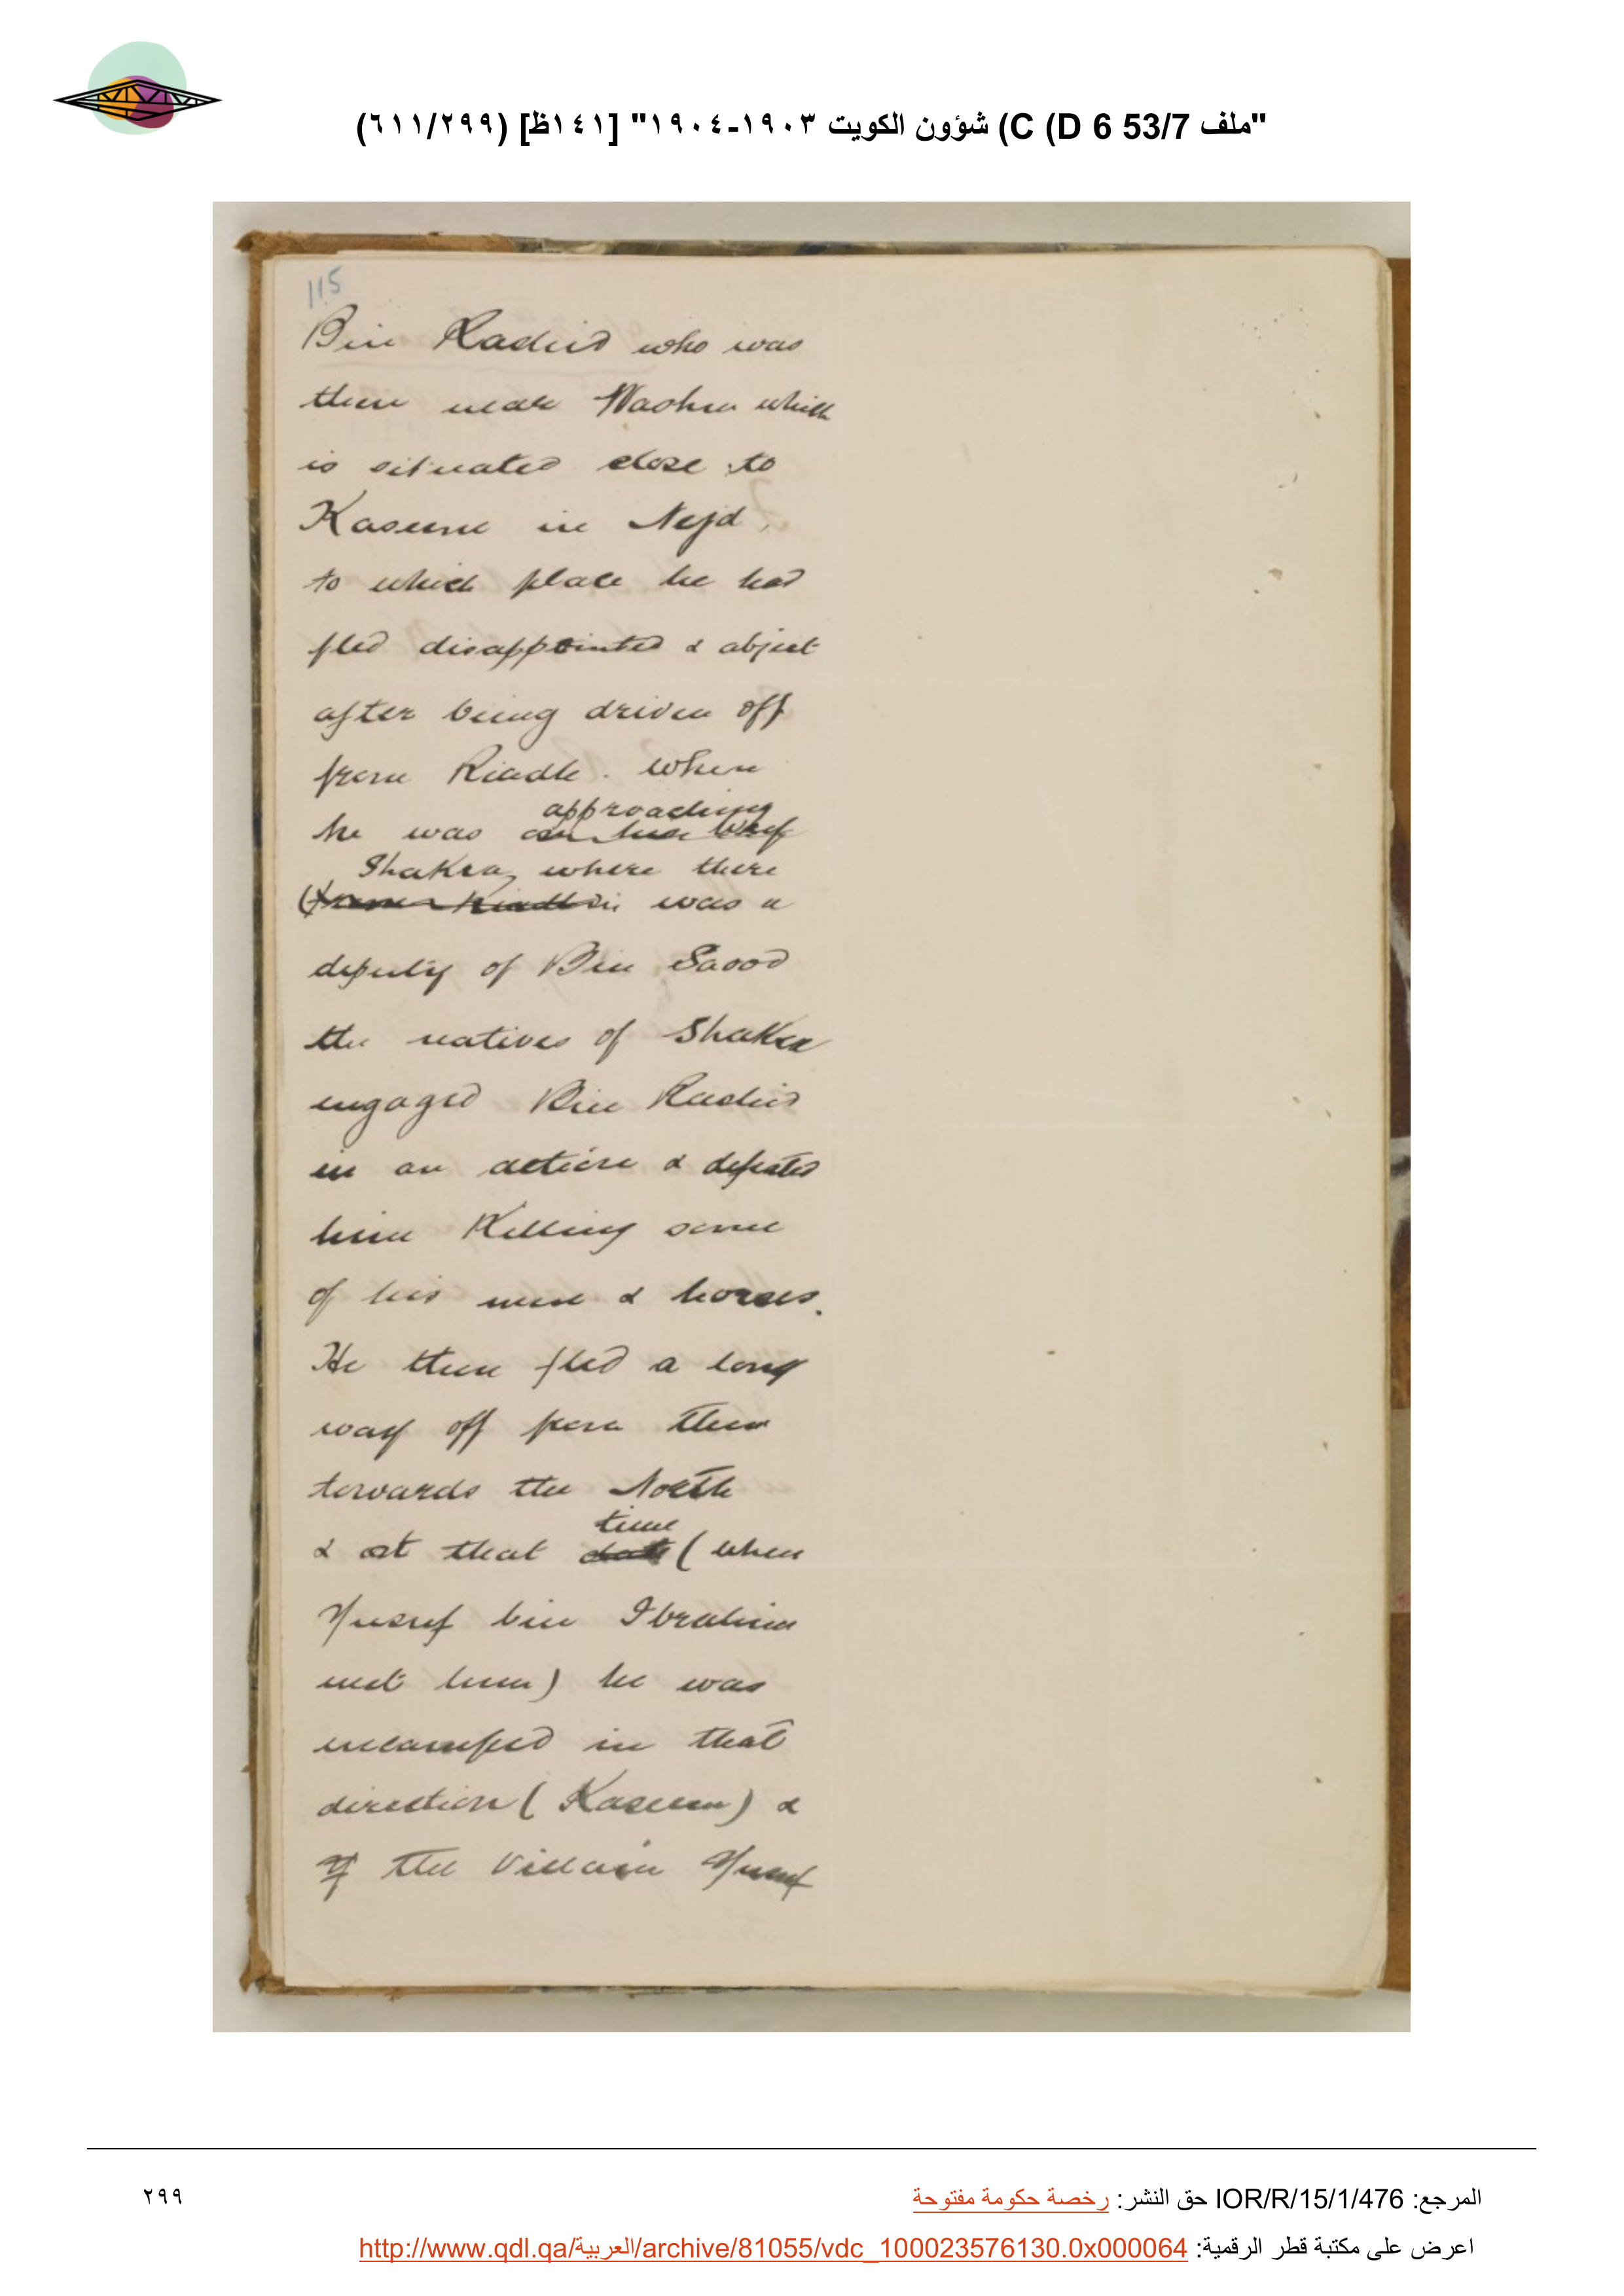 "ملف 53/7 C (D 6) شؤون الكويت ١٩٠٣-١٩٠٤" [١٤١ظ] (٦١١/٢٩٩)
115
Bin Rashid who was
then near which
is situated close to
Kaseem in Nejd,
to which place he had
fled disappointed & abject
after being driven off
from Riadh. When
approaching
he was on his way
Shakra, where there
(from Riadh in was a
deputy of Bin Saood
the natives of Shakra
engaged Bin Rashid
in an action & defeated
him Killing some
of his men & horses.
He then fled a long
way off from them
towards the North
time
& at that date (when
Yusuf bin Ibrahim
met him) he was
encamped in that
direction (Kaseem) &
If the Villain Yusuf
المرجع: IOR/R/15/1/476 حق النشر: رخصة حكومة مفتوحة
٢٩٩
اعرض على مكتبة قطر الرقمية: http://www.qdl.qa/العربية/archive/81055/vdc_100023576130.0x000064